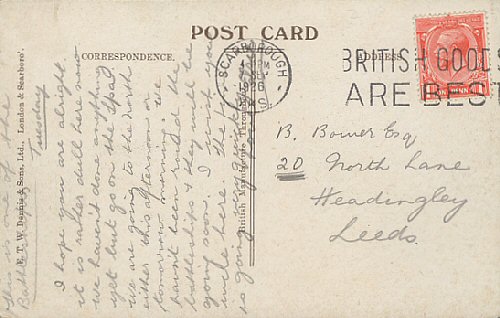 POST CARD
CORRESPONDENCE.
ADDRESS
SCARBOROUGH
1926
BRITISH GOODS
ARE BEST
B. Bower Esq
20 North Lane
Headingley
Leeds.
E. T. W. Dennis & Sons, Ltd., London & Scarboro'.
British Manufacture Throughout
This is one of the
Tuesday
I hope you are alright
it is rather dull here now
we haven't done anything
yet but go on the Spa
we are going to the north
either this afternoon or
tomorrow morning. we
havn't been round the
battleships & they will be
going soon. I wish you
were here the
is going very quickly